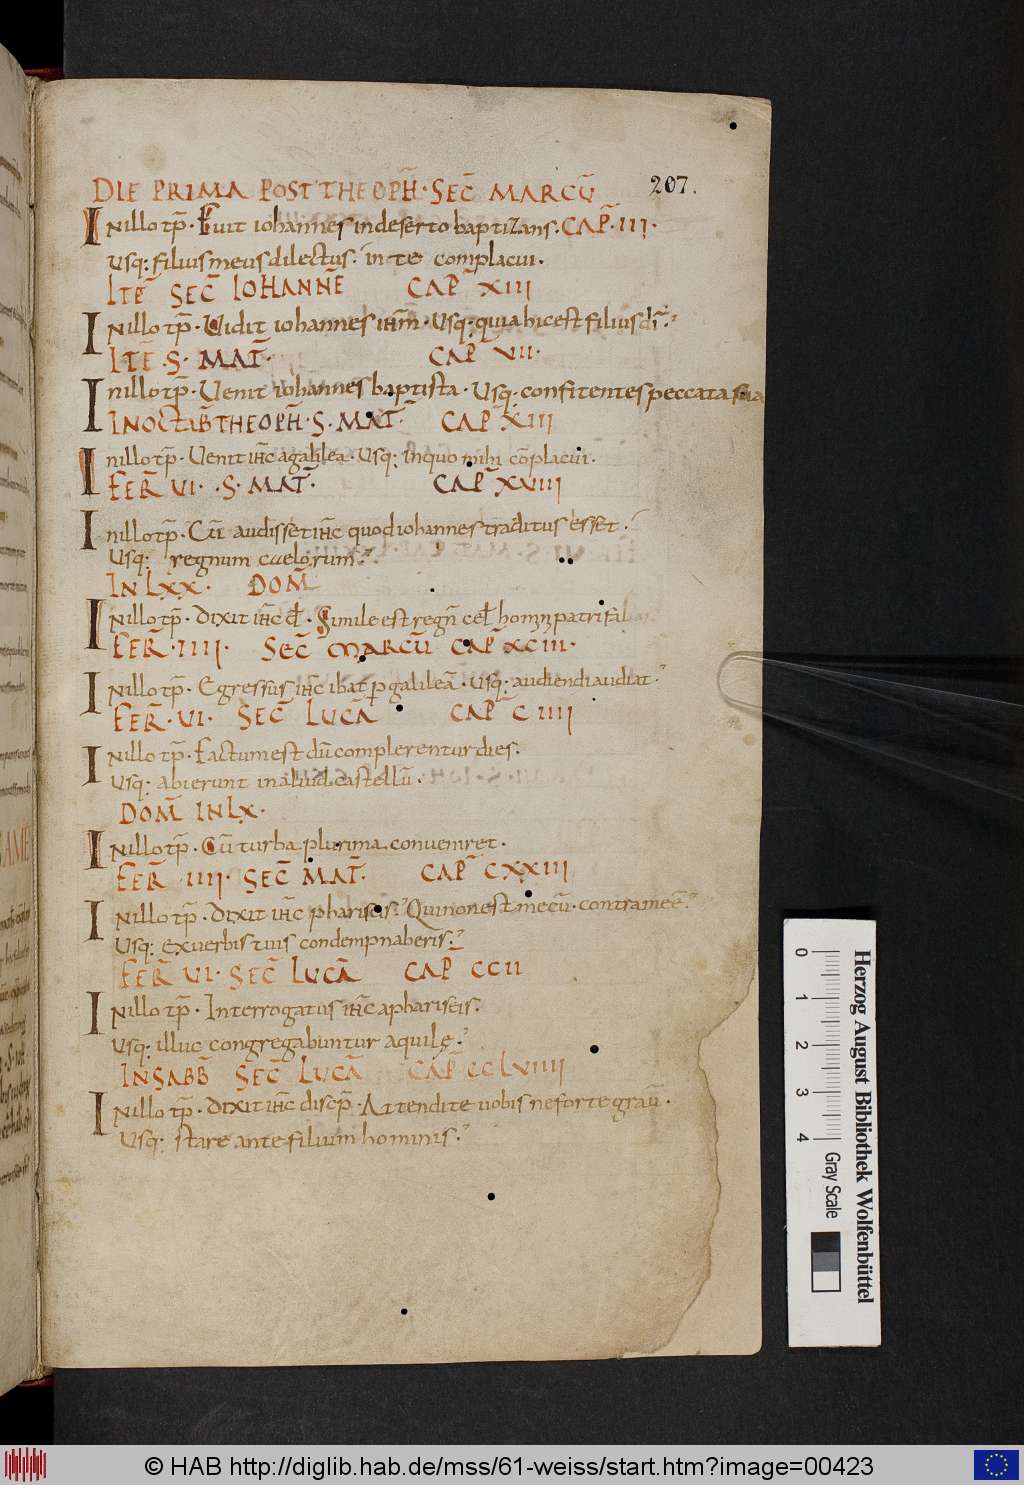 207.
DIE PRIMA POST THEOPH̄· SEC̄ MARCŪ
INillo tp̄· Fuit iohannes indeserto baptizans. CAP̄·III·
Usq: filius meus dilectus. in te complacui.
ITĒ SEC̄ IOHANNĒ CAP̄ XIII
INillo tp̄· Uidit iohannes ih̄m· Usq: quia hic est filius dī.
ITĒ .S· MAT̄· CAP̄ VII·
Inillo tp̄· Uenit iohannes baptista· Usq: confitentes peccata sua
IN OCTAB̄ THEOPH̄·S·MAT̄· CAP̄ XIII
Inillo tp̄· Uenit ih̄c agalilea· Usq: inquo mihi cōplacui.
FER̄ VI· .S·MAT̄· CAP̄ XVIII
Inillo tp̄· Cū audisset ih̄c quod iohannes traditus esset.
Usq: regnum cuelorum.
IN LXX· DOM̄
INillo tp̄· Dixit ih̄c
Simile est regn̄ cel
patrifal
FER̄·IIII· SEC̄ MARCŪ CAP̄ XCIII·
INillo tp̄· Egressus ih̄c ibat p galileā· Usq: audiendi audiat.
FER̄·VI· SEC̄ LUCĀ CAP̄ CIIII
INillo tp̄· Factum est dū complerentur dies.
Usq: abierunt in aliud castellū.
DOM̄ IN LX·
INillo tp̄· Cū turba plurima conveniret.
FER̄ IIII· SEC̄ MAT̄· CAP̄ CXXIII
INillo tp̄· Dixit ih̄c phariseis. Qui non est mecū· contra me ē.
Usq: exverbis tuis condempnaberis.
FER̄ VI· SEC̄ LUCĀ CAP̄ CCII
INillo tp̄· Interrogatus ih̄c aphariseis.
Usq: illuc congregabuntur aquile.
IN SABB̄ SEC̄ LUCĀ CAP̄ CCLVIIII
INillo tp̄· Dixit ih̄c discp̄· Attendite uobis neforte graū.
Usq: stare ante filium hominis.
0 1 2 3 4
Gray Scale
Herzog August Bibliothek Wolfenbüttel
© HAB http://diglib.hab.de/mss/61-weiss/start.htm?image=00423